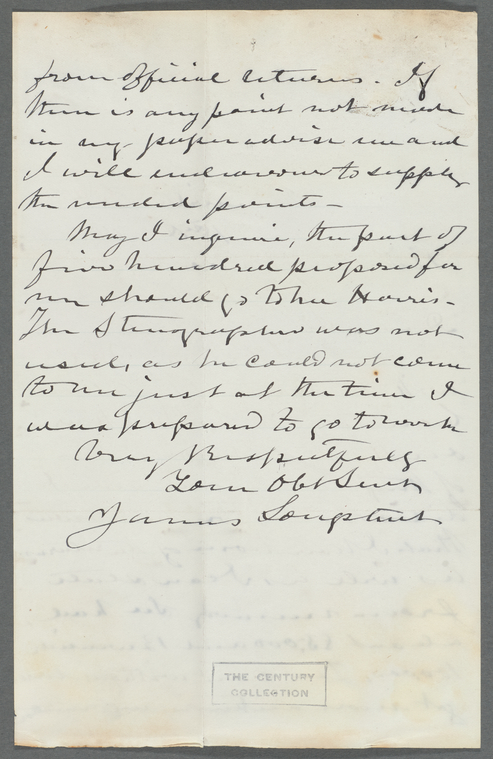 from official returns. If
there is any point not made
in my paper advise me and
I will endeavour to supply
the needed points—
May I inquire, the part of
five hundred proposed for
me should go to Harris—
The Stenographer was not
used, as he could not come
to me just at the time I
was prepared to go to work
Very Respectfully
Your Obt Servt
James Longstreet
THE CENTURY
COLLECTION